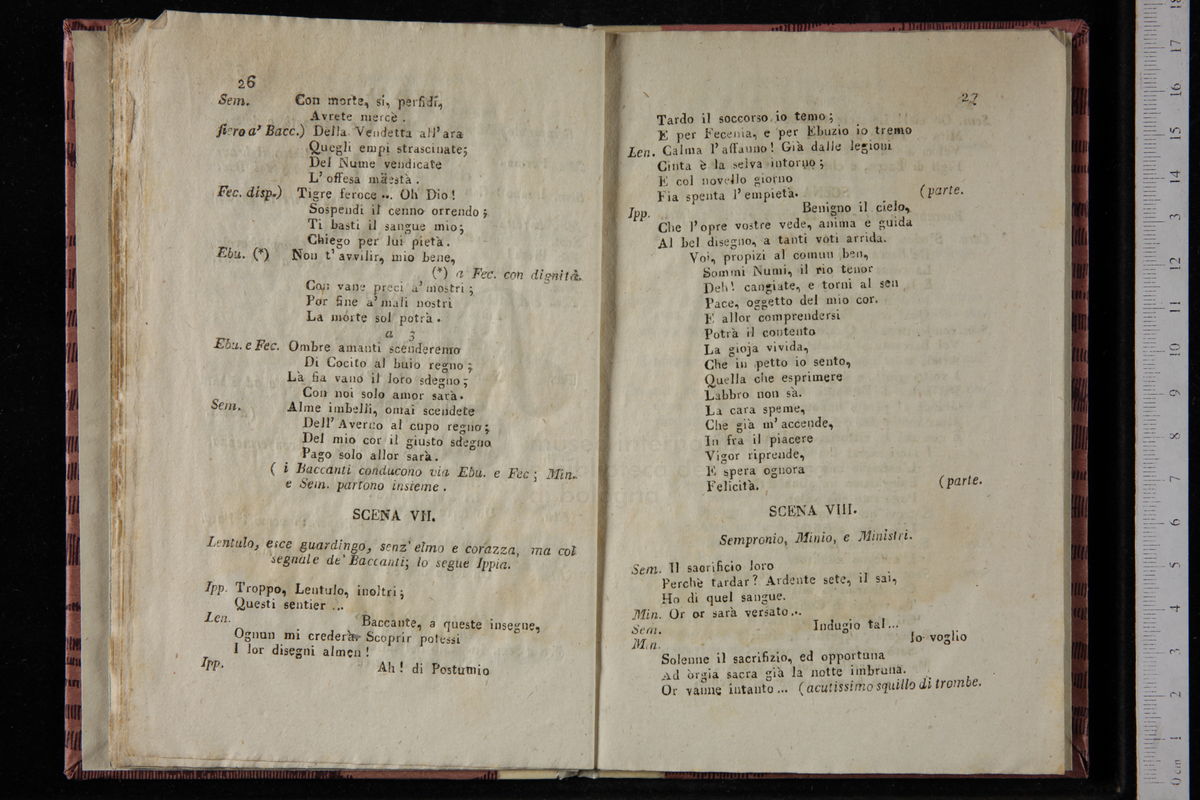 26
Sem. Con morte, sì, perfidi,
Avrete mercè.
fiero a' Bacc.) Della Vendetta all' ara
Quegli empi strascinate;
Del Nume vendicate
L' offesa maestà.
Fec. disp.) Tigre feroce ... Oh Dio!
Sospendi il cenno orrendo;
Ti basti il sangue mio;
Chiego per lui pietà.
Ebu. (*) Non t' avvilir, mio bene,
(*) a Fec. con dignità.
Con vane preci a' mostri;
Por fine a' mali nostri
La morte sol potrà.
a 3
Ebu. e Fec. Ombre amanti scenderemo
Di Cocito al buio regno;
Là fia vano il loro sdegno;
Con noi solo amor sarà.
Sem. Alme imbelli, omai scendete
Dell' Averno al cupo regno;
Del mio cor il giusto sdegno
Pago solo allor sarà.
( i Baccanti conducono via Ebu. e Fec; Min.
e Sem. partono insieme.
SCENA VII.
Lentulo, esce guardingo, senz' elmo e corazza, ma col
segnale de' Baccanti; lo segue Ippia.
Ipp. Troppo, Lentulo, inoltri;
Questi sentier ...
Len. Baccante, a queste insegne,
Ognun mi crederà. Scoprir potessi
I lor disegni almen!
Ipp. Ah! di Postumio
27
Tardo il soccorso io temo;
E per Fecenia, e per Ebuzio io tremo
Len. Calma l' affanno! Già dalle legioni
Cinta è la selva intorno;
E col novello giorno
Fia spenta l' empietà. (parte.
Ipp. Benigno il cielo,
Che l' opre vostre vede, anima e guida
Al bel disegno, a tanti voti arrida.
Voi, propizi al comun ben,
Sommi Numi, il rio tenor
Deh! cangiate, e torni al sen
Pace, oggetto del mio cor.
E allor comprendersi
Potrà il contento
La gioja vivida,
Che in petto io sento,
Quella che esprimere
Labbro non sà.
La cara speme,
Che già m' accende,
In fra il piacere
Vigor riprende,
E spera ognora
Felicità. (parte.
SCENA VIII.
Sempronio, Minio, e Ministri.
Sem. Il sacrificio loro
Perchè tardar? Ardente sete, il sai,
Ho di quel sangue.
Min. Or or sarà versato...
Sem. Indugio tal...
Min. Io voglio
Solenne il sacrifizio, ed opportuna
Ad orgia sacra già la notte imbruna.
Or vanne intanto ... (acutissimo squillo di trombe.